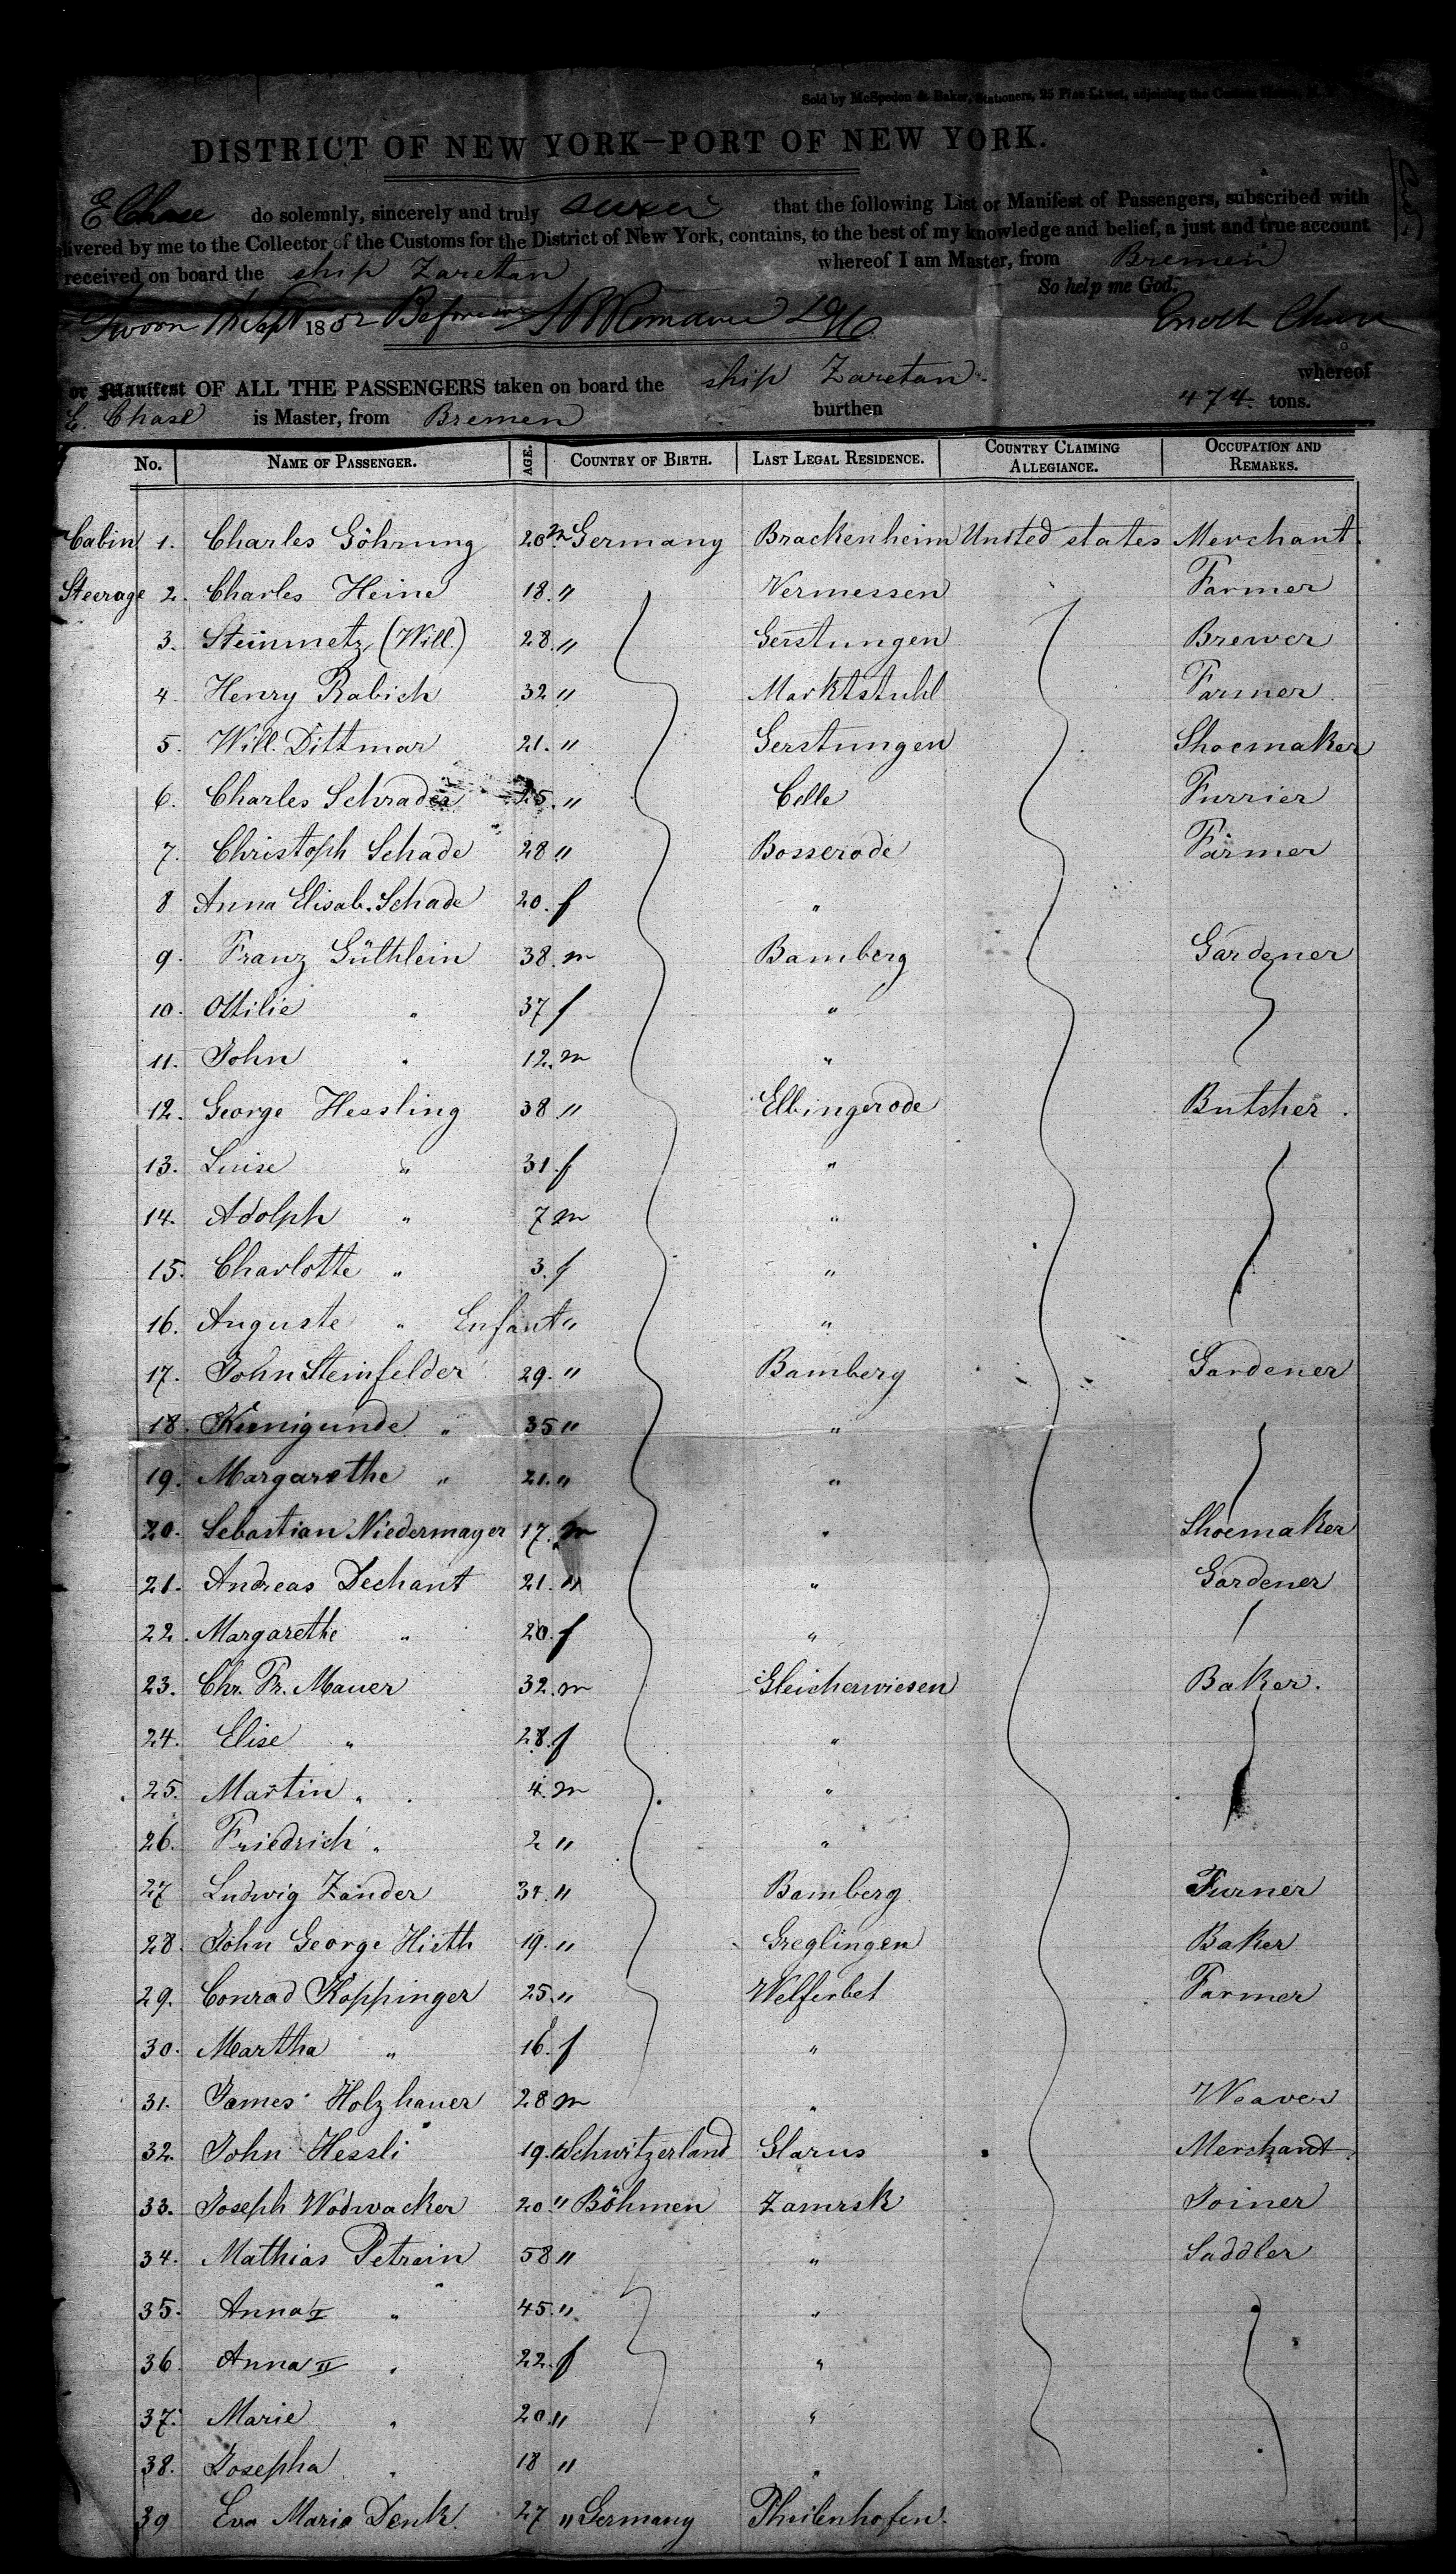 Sold by McSpedon & Baker, Stationers, 25 Pine Street, adjoining the Custom House, N. Y.
DISTRICT OF NEW YORK—PORT OF NEW YORK.
E Chase do solemnly, sincerely and truly swear that the following List or Manifest of Passengers, subscribed with
livered by me to the Collector of the Customs for the District of New York, contains, to the best of my knowledge and belief, a just and true account
received on board the ship Zaretan whereof I am Master, from Bremen
So help me God.
Sworn Sept 1852 Before me Enoch Chase
or Manifest OF ALL THE PASSENGERS taken on board the ship Zaretan. whereof
E. Chase is Master, from Bremen burthen 474 tons.
No. NAME OF PASSENGER. AGE. COUNTRY OF BIRTH. LAST LEGAL RESIDENCE. COUNTRY CLAIMING ALLEGIANCE. OCCUPATION AND REMARKS.
Cabin 1. Charles Göhrung 20 m Germany Brackenheim United states Merchant.
Steerage 2. Charles Heine 18. " Vermessen Farmer
3. Steinmetz (Will.) 28. " Gerstungen Brewer
4 Henry Rabich 32 " Marktstuhl Farmer
5. Will. Dittmar 21. " Gerstungen Shoemaker
6. Charles Schrader 25. " Celle Furrier
7. Christoph Schade 28 " Bosserode Farmer
8 Anna Elisab. Schade 20. f "
9. Franz Güthlein 38. m Bamberg Gardener
10. Ottilie " 37 f "
11. John " 12. m "
12. George Hessling 38 " Elbingerode Butsher.
13. Luise " 31. f "
14. Adolph " 7 m "
15. Charlotte " 3. f "
16. Auguste " Enfant " "
17. John Steinfelder 29. " Bamberg Gardener
18. Kunigunde " 35 " "
19. Margarethe " 21. " "
20. Sebastian Niedermayer 17. m " Shoemaker
21. Andreas Dechant 21. " " Gardener
22. Margarethe " 20. f "
23. Chr. Fr. Mauer 32. m Gleicherwiesen Baker.
24. Elise " 28. f "
25. Martin " 4. m "
26. Friedrich " 2 " "
27 Ludwig Zander 34. " Bamberg Turner
28. John George Hirth 19. " Greglingen Baker
29. Conrad Koppinger 25. " Welferbet Farmer
30. Martha " 16. f "
31. James Holzhauer 28 m " Weaver
32. John Hessli 19. " Schwitzerland Glarus Merchant.
33. Joseph Wodwacker 20 " Böhmen Zamrsk Joiner
34. Mathias Petrein 58 " " Saddler
35. Anna I " 45. " "
36 Anna II " 22. f "
37. Marie " 20. " "
38. Josepha " 18 " "
39 Eva Maria Denk. 27 " Germany Theilenhofen.